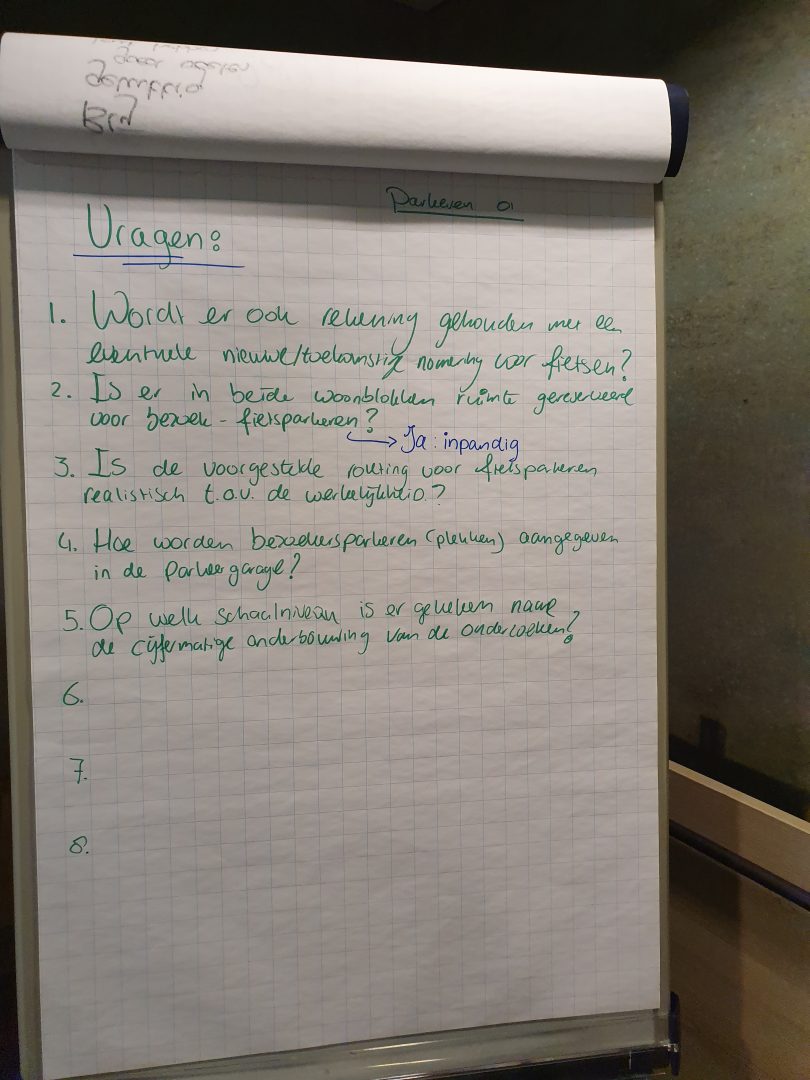 Parkeren 01
Vragen:
1. Wordt er ook rekening gehouden met een
eventuele nieuwe/toekomstige normering voor fietsen?
2. Is er in beide woonblokken ruimte gereserveerd
voor bezoek-fietsparkeren?
Ja: inpandig
3. Is de voorgestelde routing voor fietsparkeren
realistisch t.o.v. de werkelijkheid?
4. Hoe worden bezoekersparkeren (plekken) aangegeven
in de parkeergarage?
5. Op welk schaalniveau is er gekeken naar
de cijfermatige onderbouwing van de onderzoeken?
6.
7.
8.